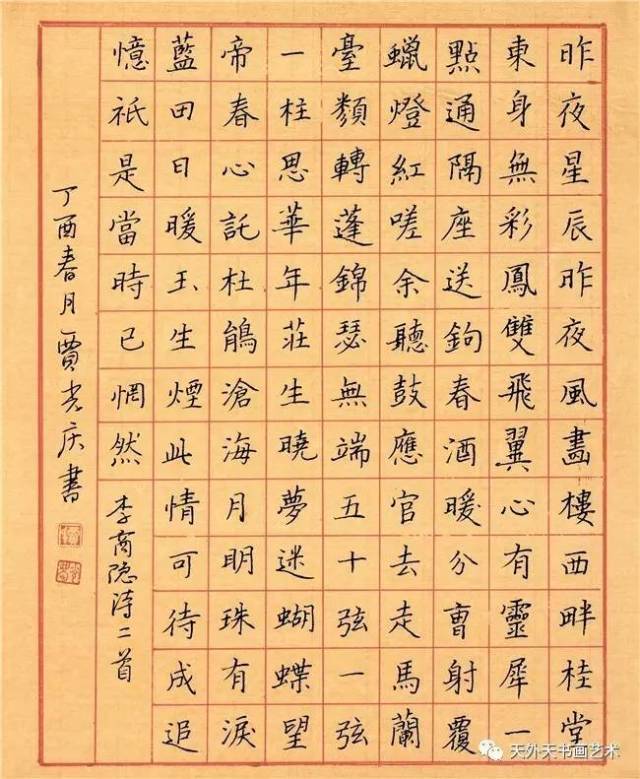 昨夜星辰昨夜風畫樓西畔桂堂
東身無彩鳳雙飛翼心有靈犀一
點通隔座送鉤春酒暖分曹射覆
蠟燈紅嗟余聽鼓應官去走馬蘭
臺類轉蓬錦瑟無端五十弦一弦
一柱思華年莊生曉夢迷蝴蝶望
帝春心託杜鵑滄海月明珠有淚
藍田日暖玉生煙此情可待成追
憶祇是當時已惘然
李商隐诗二首
丁酉春月賈光庆書
天外天书画艺术